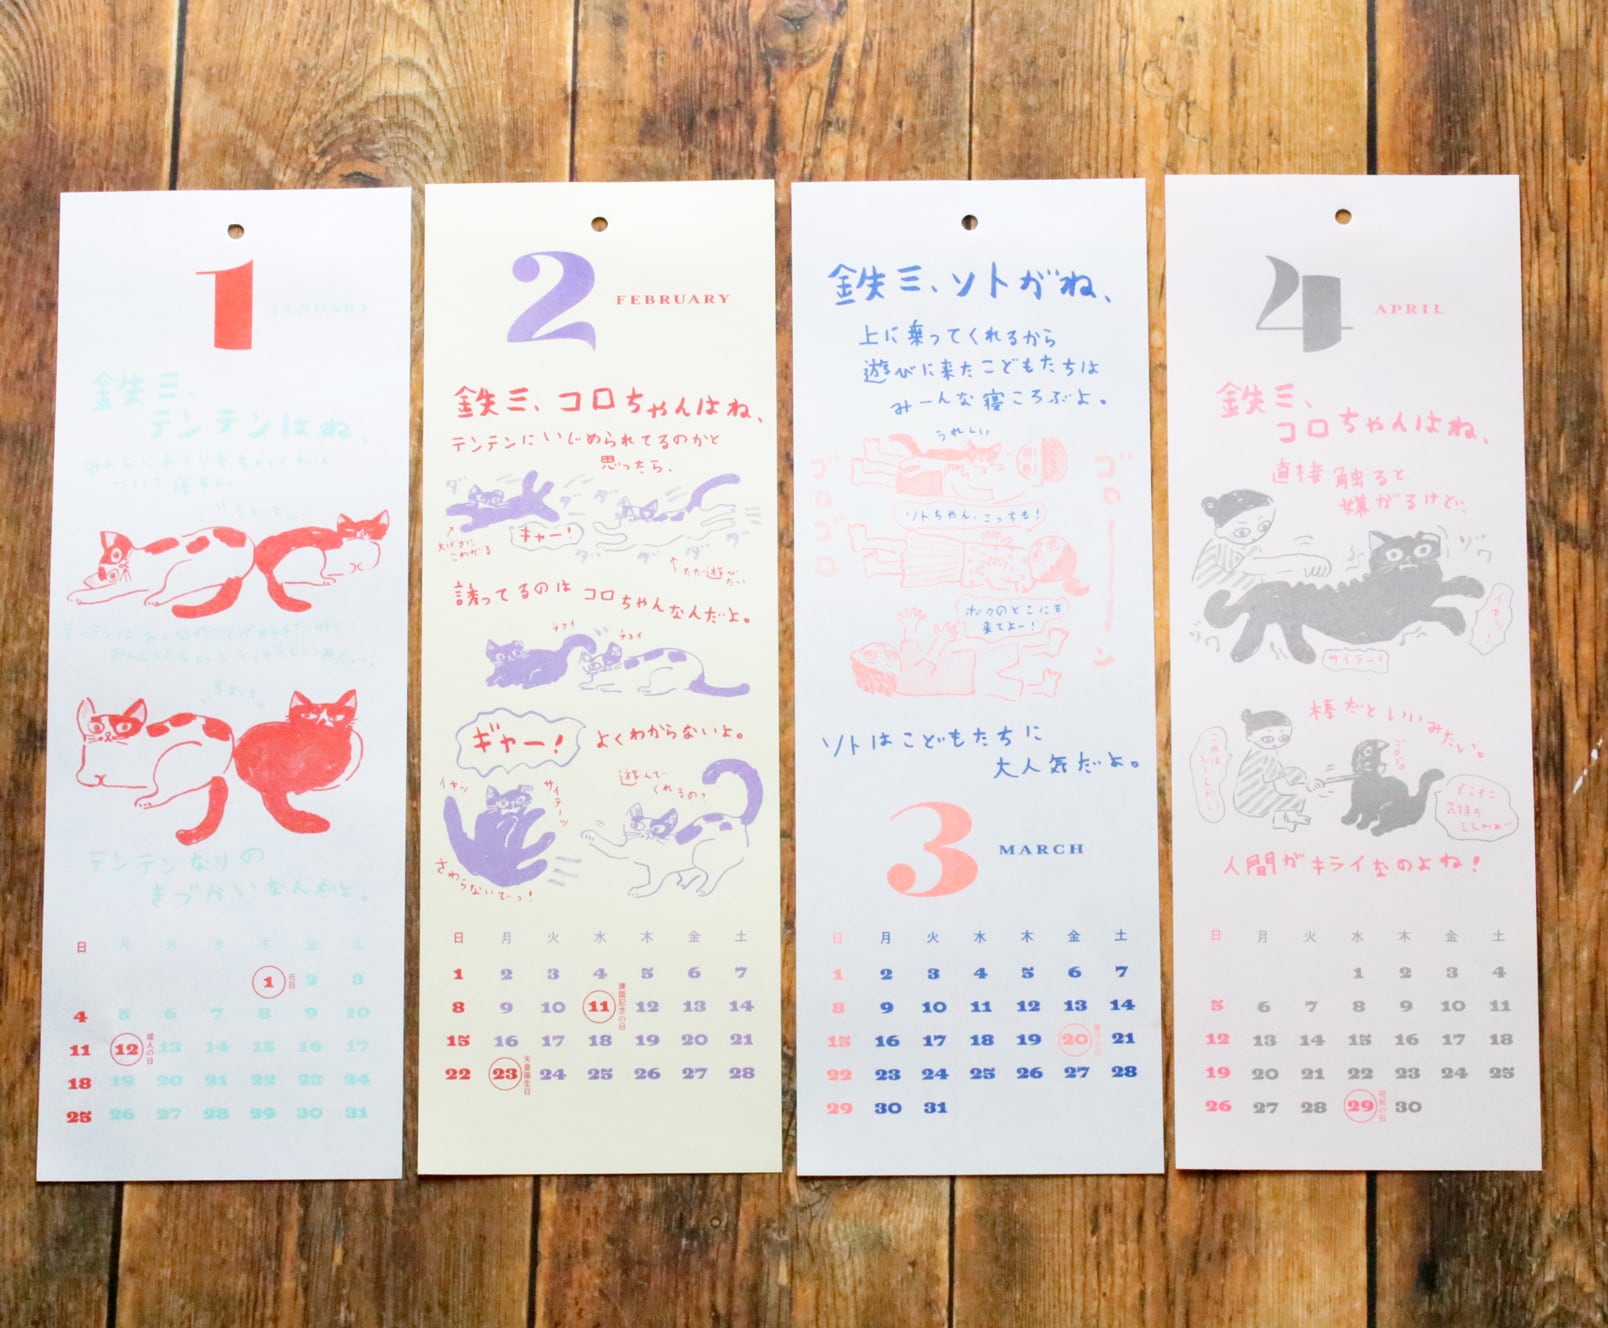 1
JANUARY
鉄三、
テンテンはね、
みんなにおしりをちょっとだけ
つけて寝るよ。
ちょっと
みんなにちょっとさわってうれしいみたい。
ちょっと
テンテンなりの
きづかいなんだよ。
日 月 火 水 木 金 土
1 元日 2 3
4 5 6 7 8 9 10
11 12 成人の日 13 14 15 16 17
18 19 20 21 22 23 24
25 26 27 28 29 30 31
2
FEBRUARY
鉄三、コロちゃんはね、
テンテンにいじめられてるのかと
思ったら、
ダダ ダダ
大げさに
こわがる
キャー!
ダダ ダダ
ただ遊びたい
誘ってるのは コロちゃんなんだよ。
チョイ チョイ
ギャー! よくわからないよ。
イヤッ
サイテーッ
遊んで
くれるの?
さわらないでーっ!
日 月 火 水 木 金 土
1 2 3 4 5 6 7
8 9 10 11 建国記念の日 12 13 14
15 16 17 18 19 20 21
22 23 天皇誕生日 24 25 26 27 28
鉄三、ソトがね、
上に乗ってくれるから
遊びに来たこどもたちは
みーんな寝ころぶよ。
うれしい
ゴロゴロ
ゴローン
ソトちゃん、こっちも!
ボクのとこにも
来てよー!
ソトはこどもたちに
大人気だよ。
3
MARCH
日 月 火 水 木 金 土
1 2 3 4 5 6 7
8 9 10 11 12 13 14
15 16 17 18 19 20 春分の日 21
22 23 24 25 26 27 28
29 30 31
4
APRIL
鉄三、
コロちゃんはね、
直接触ると
嫌がるけど、
ゾワ
ゾワ
イヤー!
サイテー!
棒だといいみたい。
これは
いーんだ
ゴロゴロ
そこそこ
気持ち
ええわぁー
人間がキライなのよね!
日 月 火 水 木 金 土
1 2 3 4
5 6 7 8 9 10 11
12 13 14 15 16 17 18
19 20 21 22 23 24 25
26 27 28 29 昭和の日 30